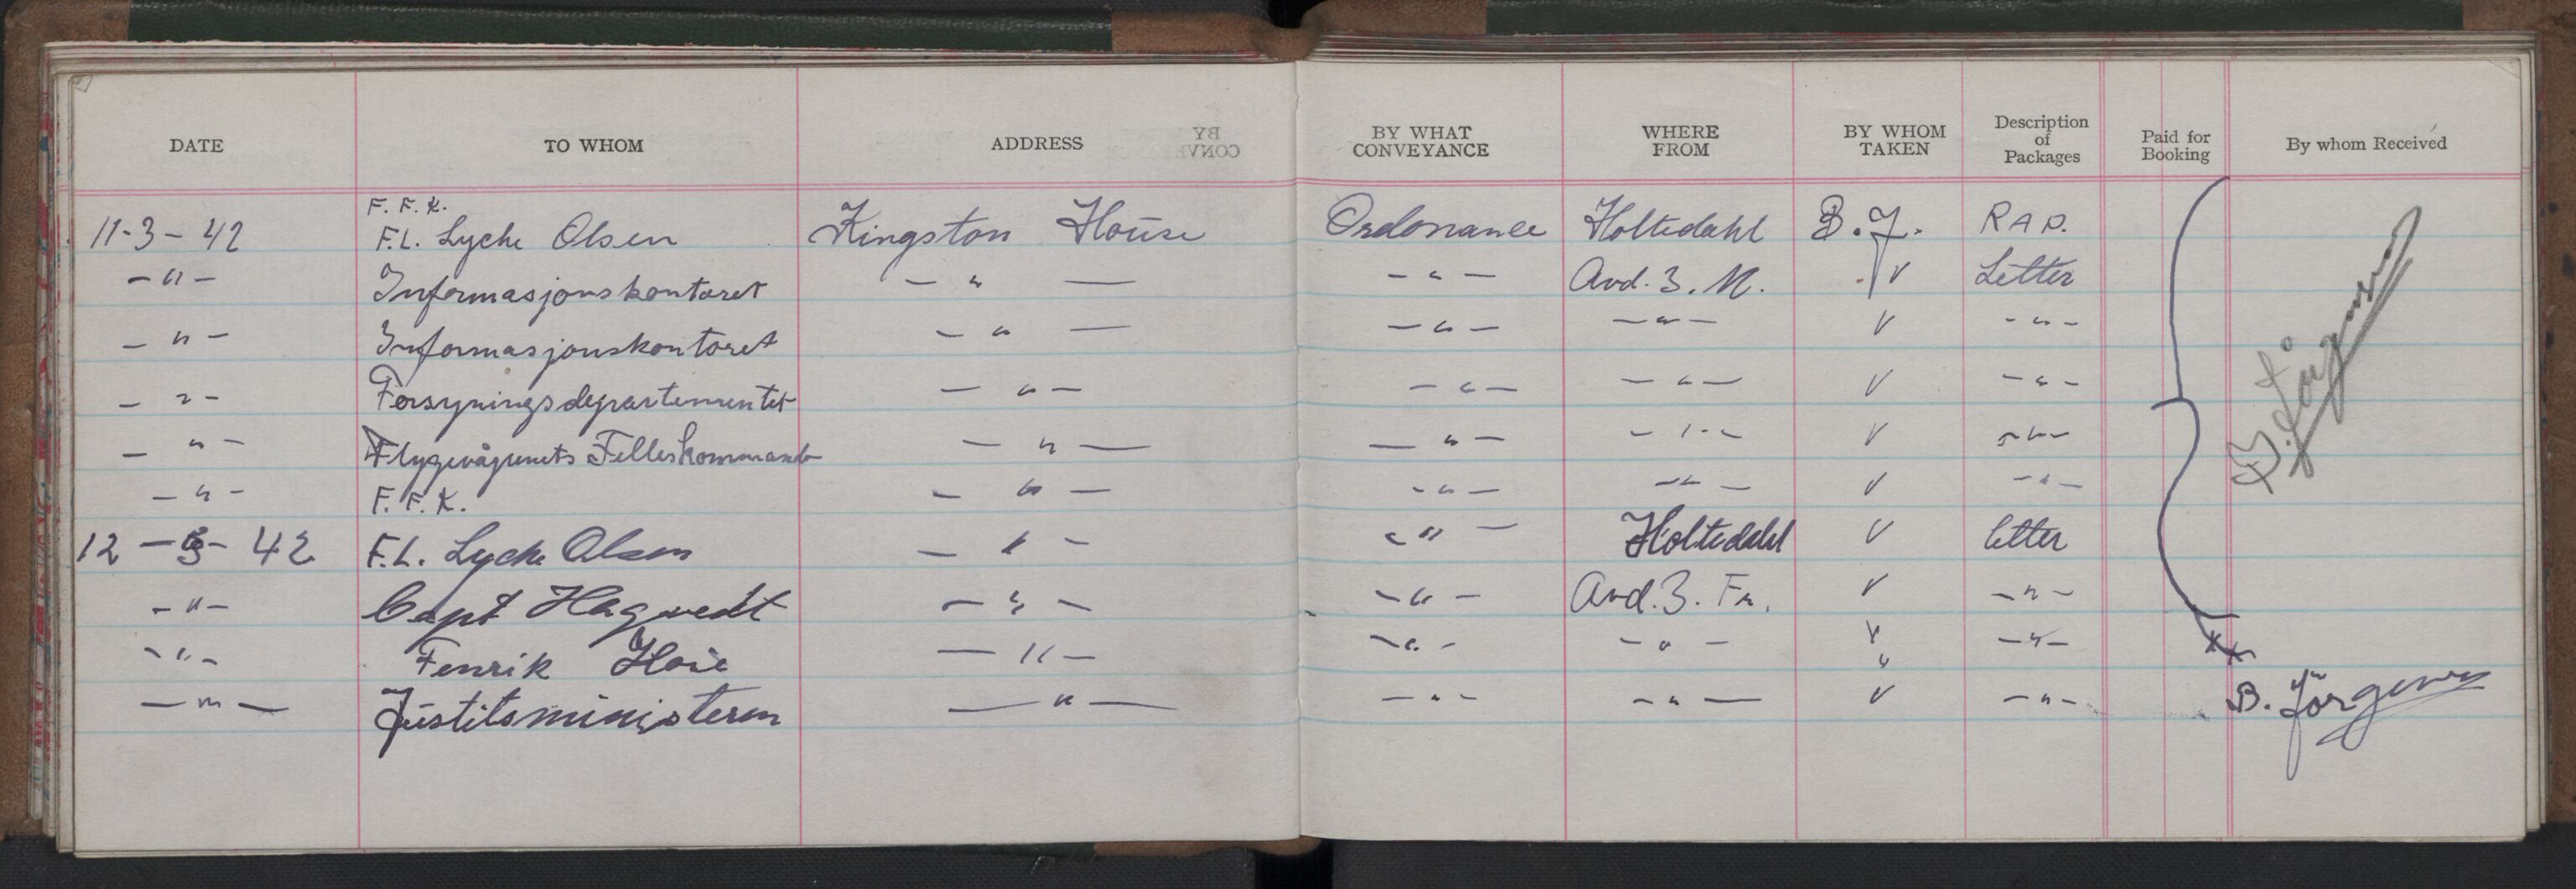 DATE TO WHOM ADDRESS BY WHAT CONVEYANCE WHERE FROM BY WHOM TAKEN Description of Packages Paid for Booking By whom Received
F. F. K.
11-3-42 F.L. Lyche Olsen Kingston House Ordonance Holtedahl B.J. RAP.
-"- Informasjonskontoret - " - - " - Avd. 3. M. V Letter
-"- Informasjonskontoret - " - - " - - " - V - " -
-"- Forsyningsdepartementet - " - - " - - " - V - " -
-"- Flygevåpnets Felleskommando - " - - " - - " - V - " -
-"- F. F. K. - " - - " - - " - V - " -
12-3-42 F.L. Lyche Olsen - " - - " - Holtedahl V letter
-"- Capt Hagvedt - " - - " - Avd. 3. Fr. V - " -
-"- Fenrik Hoie - " - - " - - " - V - " -
-"- Justitsministeren - " - - " - - " - V - " -
B. Jörgensen
B. Jörgensen